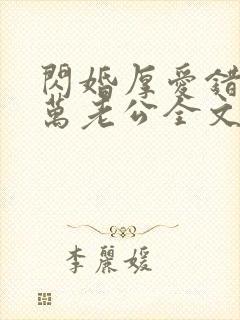 閃婚厚愛錯
萬老公全文
李麗媛